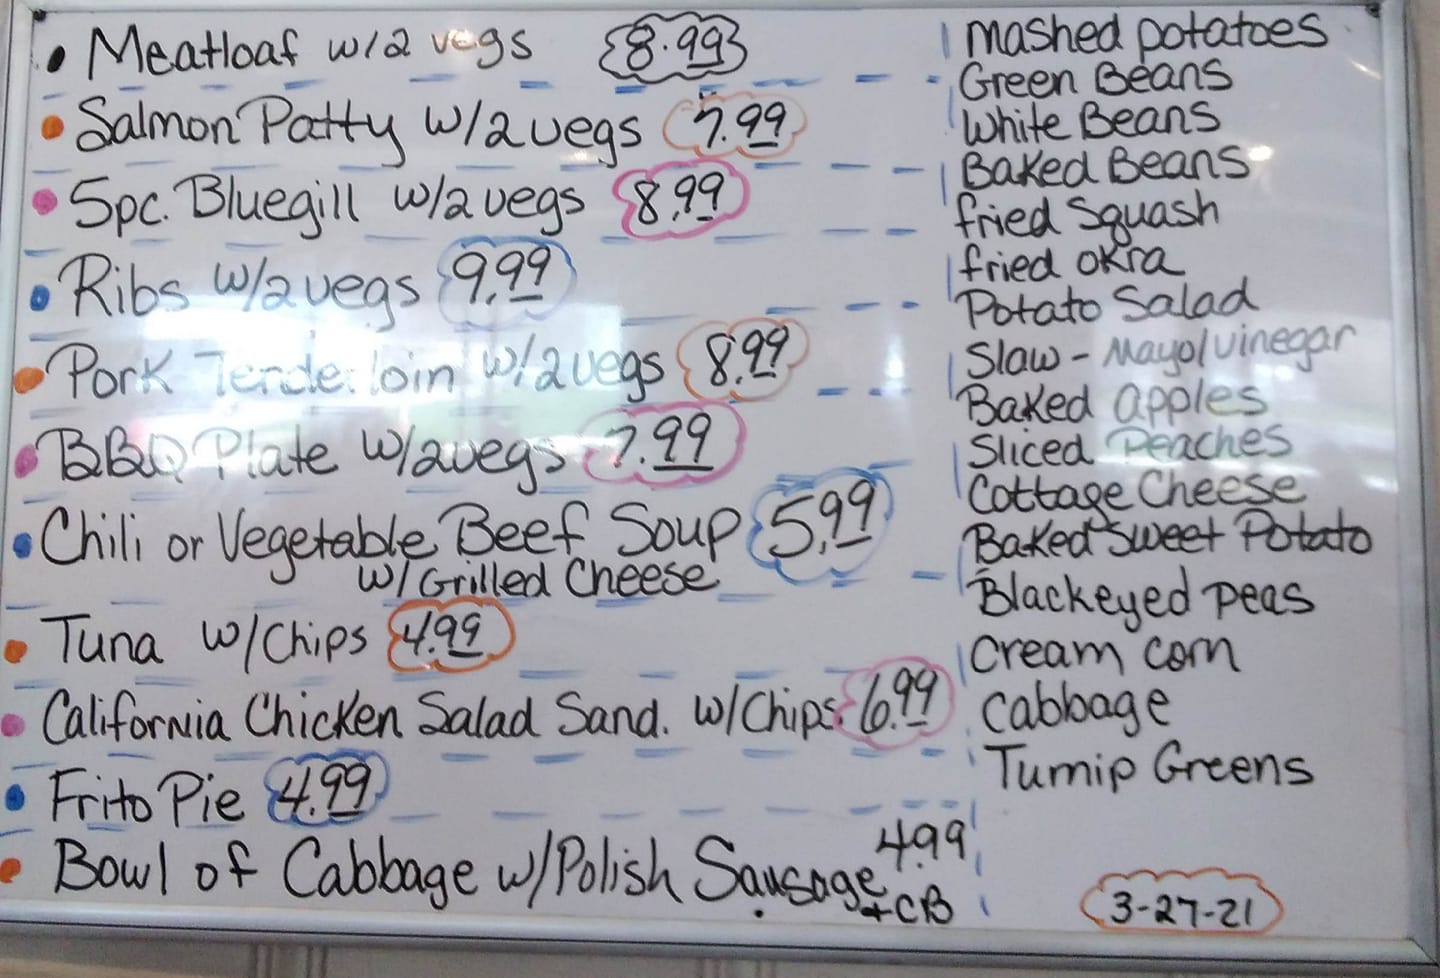 Meatloaf w/2 vegs 8.99
Salmon Patty w/2 vegs 7.99
5pc. Bluegill w/2 vegs 8.99
Ribs w/2 vegs 9.99
Pork Tenderloin w/2 vegs 8.99
BBQ Plate w/2 vegs 7.99
Chili or Vegetable Beef Soup 5.99
w/Grilled Cheese
Tuna w/Chips 4.99
California Chicken Salad Sand. w/Chips. 6.99
Frito Pie 4.99
Bowl of Cabbage w/Polish Sausage 4.99
+CB
mashed potatoes
Green Beans
White Beans
Baked Beans
fried Squash
fried okra
Potato Salad
Slaw - Mayo/vinegar
Baked apples
Sliced Peaches
Cottage Cheese
Baked Sweet Potato
Blackeyed peas
cream corn
cabbage
Turnip Greens
3-27-21